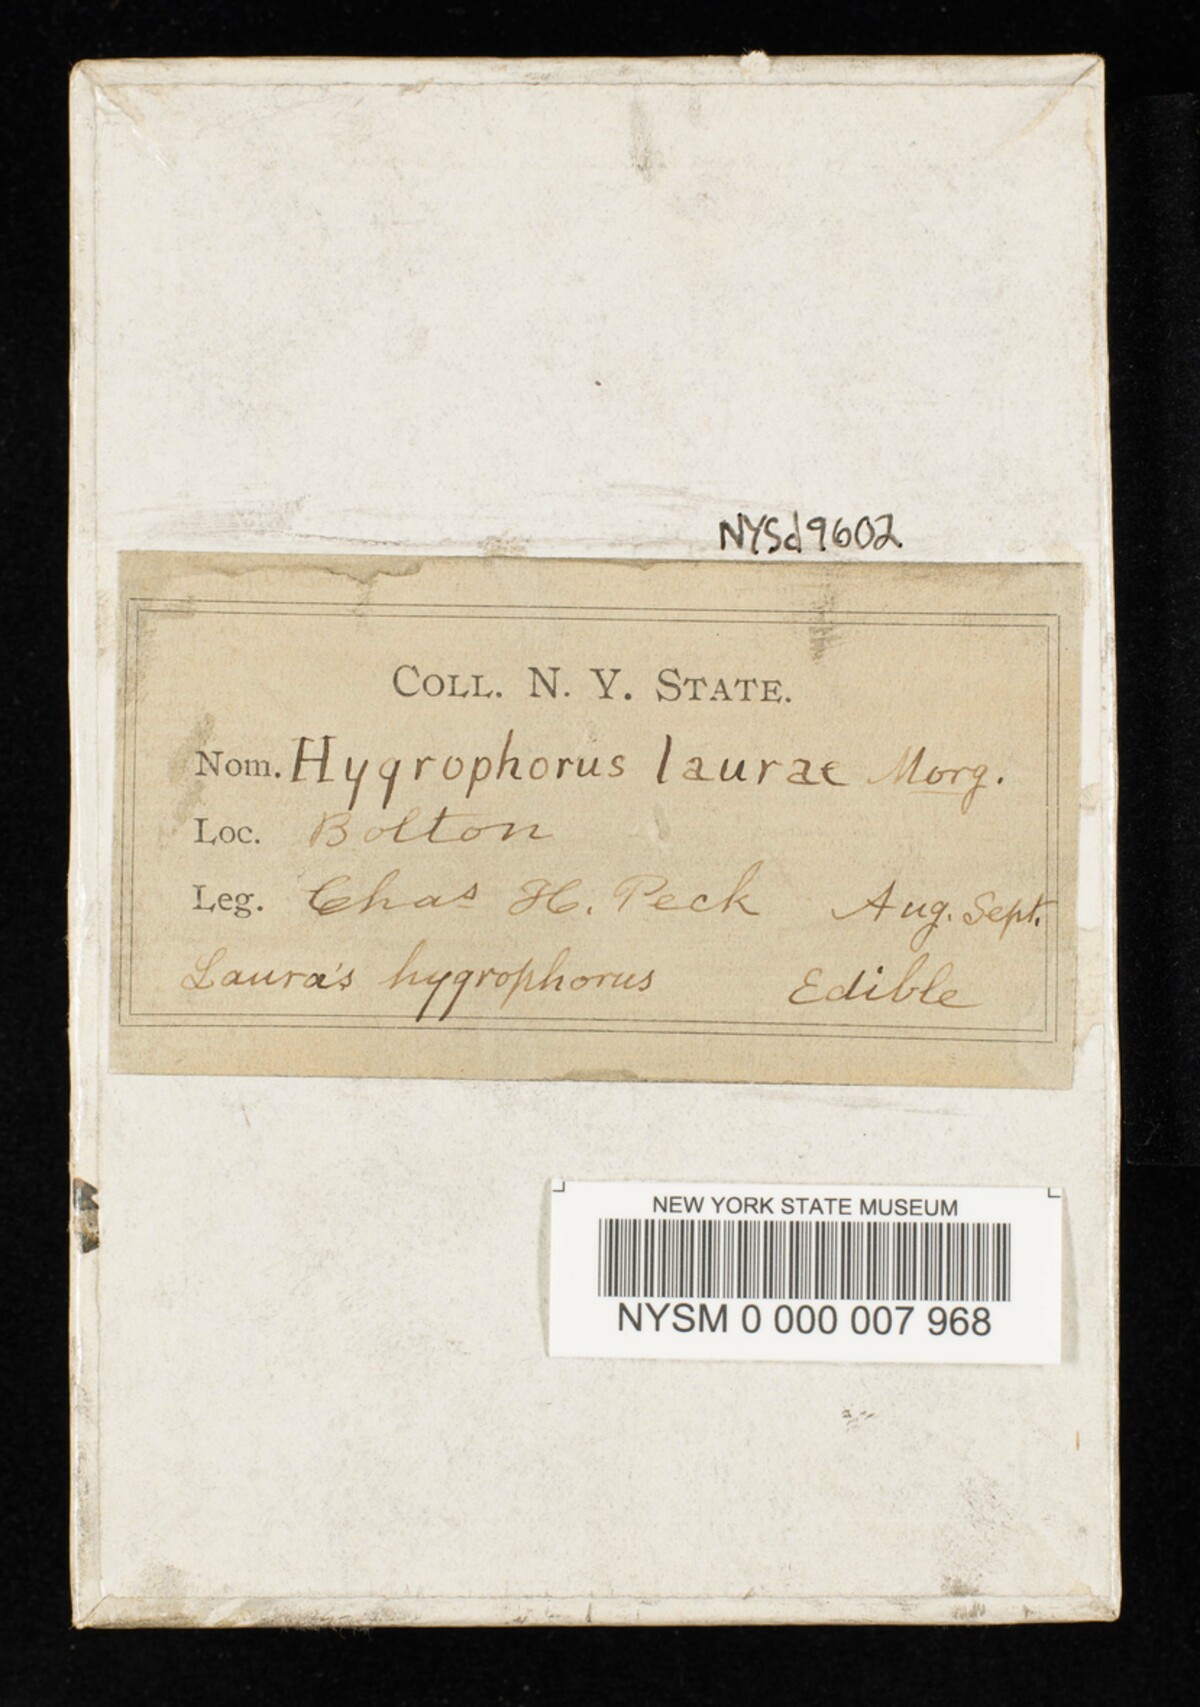 NYSd9602
COLL. N. Y. STATE.
Nom. Hygrophorus laurae Morg.
Loc. Bolton
Leg. Chas H. Peck Aug. Sept.
Laura's hygrophorus Edible
NEW YORK STATE MUSEUM
NYSM 0 000 007 968